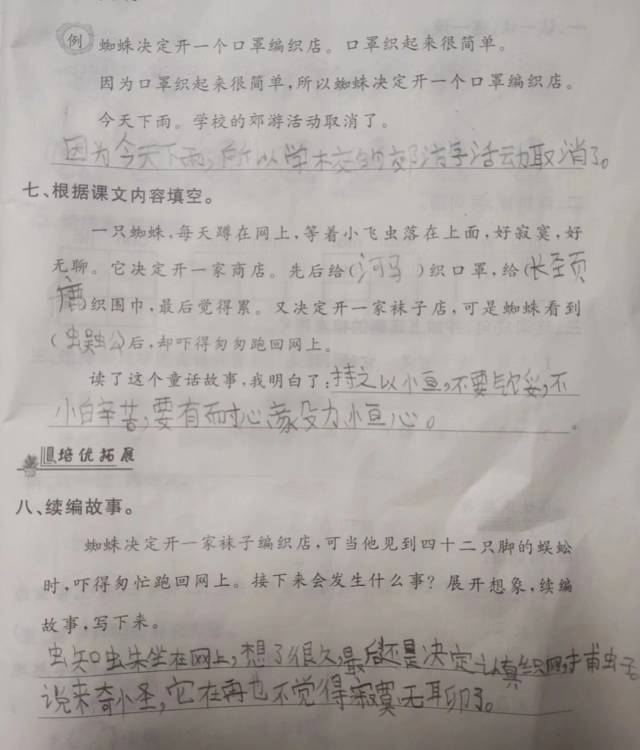 例 蜘蛛决定开一个口罩编织店。口罩织起来很简单。
因为口罩织起来很简单,所以蜘蛛决定开一个口罩编织店。
今天下雨。学校的郊游活动取消了。
因为今天下雨,所以学校的郊游活动取消了。
七、根据课文内容填空。
一只蜘蛛,每天蹲在网上,等着小飞虫落在上面,好寂寞,好
无聊。它决定开一家商店。先后给(河马)织口罩,给(长颈
鹿)织围巾,最后觉得累。又决定开一家袜子店,可是蜘蛛看到
(蜈蚣)后,却吓得匆匆跑回网上。
读了这个童话故事,我明白了:持之以恒,不要,不
怕辛苦,要有耐心,恒心。
培优拓展
八、续编故事。
蜘蛛决定开一家袜子编织店,可当他见到四十二只脚的蜈蚣
时,吓得匆忙跑回网上。接下来会发生什么事?展开想象,续编
故事,写下来。
蜘蛛坐在网上,想了很久,最后还是决定认真织网捕虫
说来奇,它在再也不觉得寂寞无聊了。